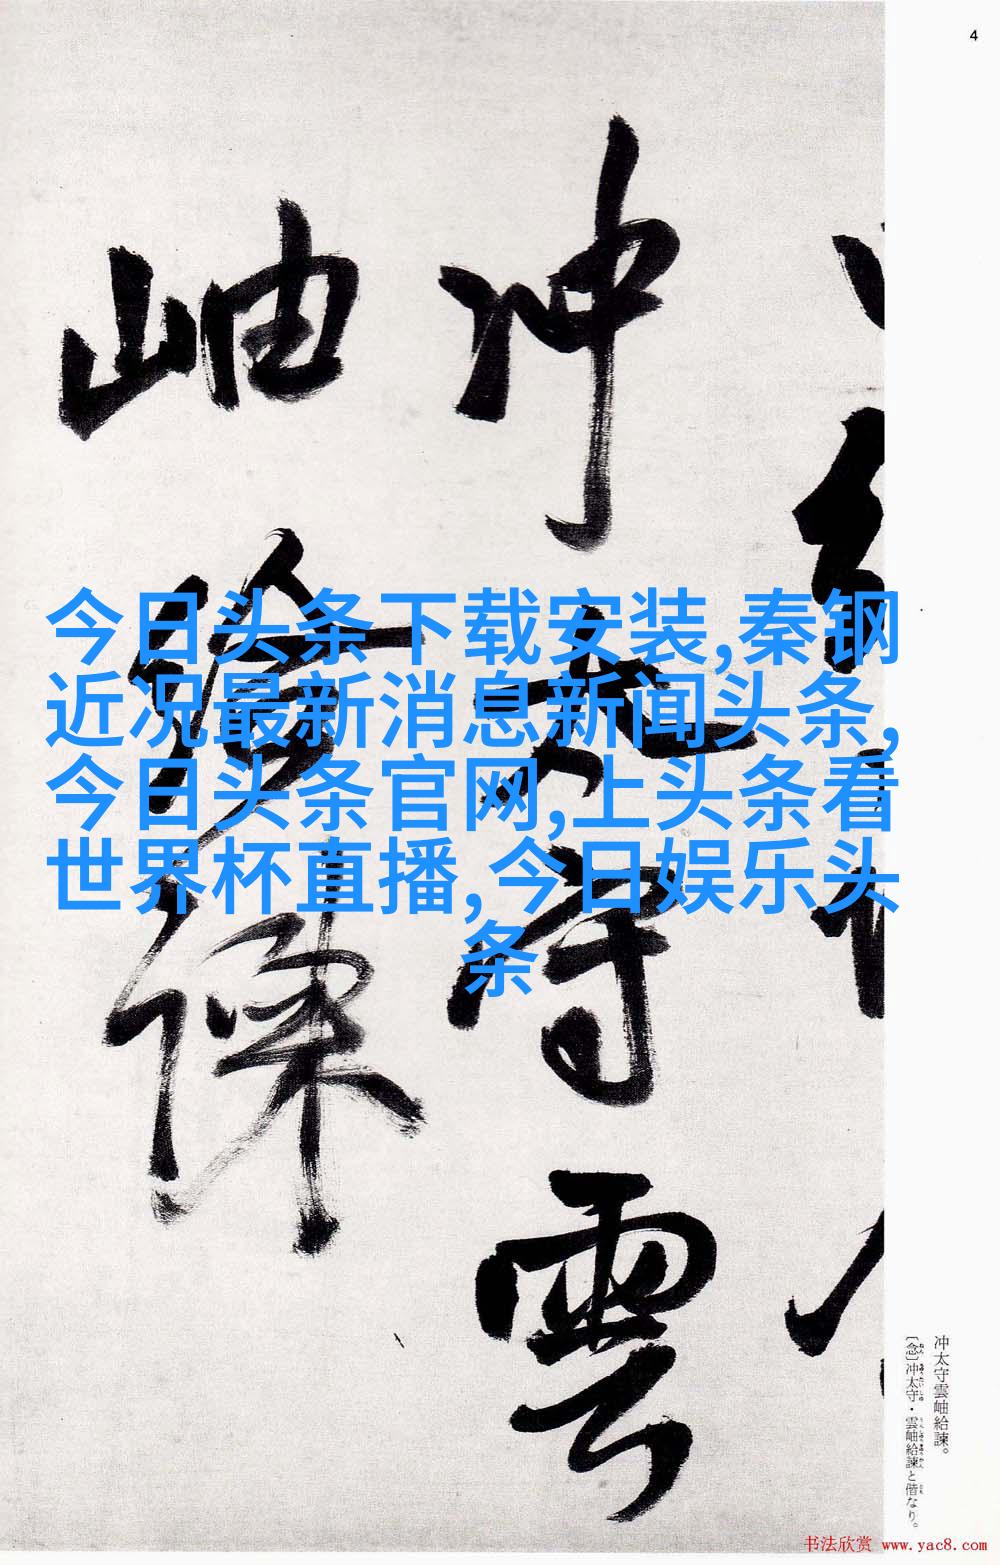 4
冲太守雲
岫給諫
今日头条下载安装,秦钢
近况最新消息新闻头条,
今日头条官网,上头条看
世界杯直播,今日娱乐头
条
冲太守雲岫給諫。
〔念〕冲太守・雲岫給諫と偕なり。
书法欣赏 www.yac8.com